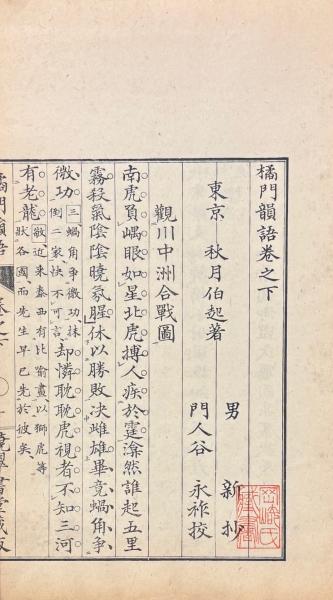 橘門韻語卷之下
東京 秋月伯起著
男 新 抄
門人谷 永祚挍
觀川中洲合戰圖
南虎負嵎眼如星北虎搏人疾於霆溁然誰起五里
霧殺氣陰陰曉氛腥休以勝敗決雌雄畢竟蝸角爭
微功
三蝸角爭微功抹
倒二家快不可言
却憐耽耽虎視者不知三河
有老龍
敬近來泰西有比喻畫以獅虎等
狀各國而先生早已先於彼矣
橘門韻語
卷之下
書堂藏版